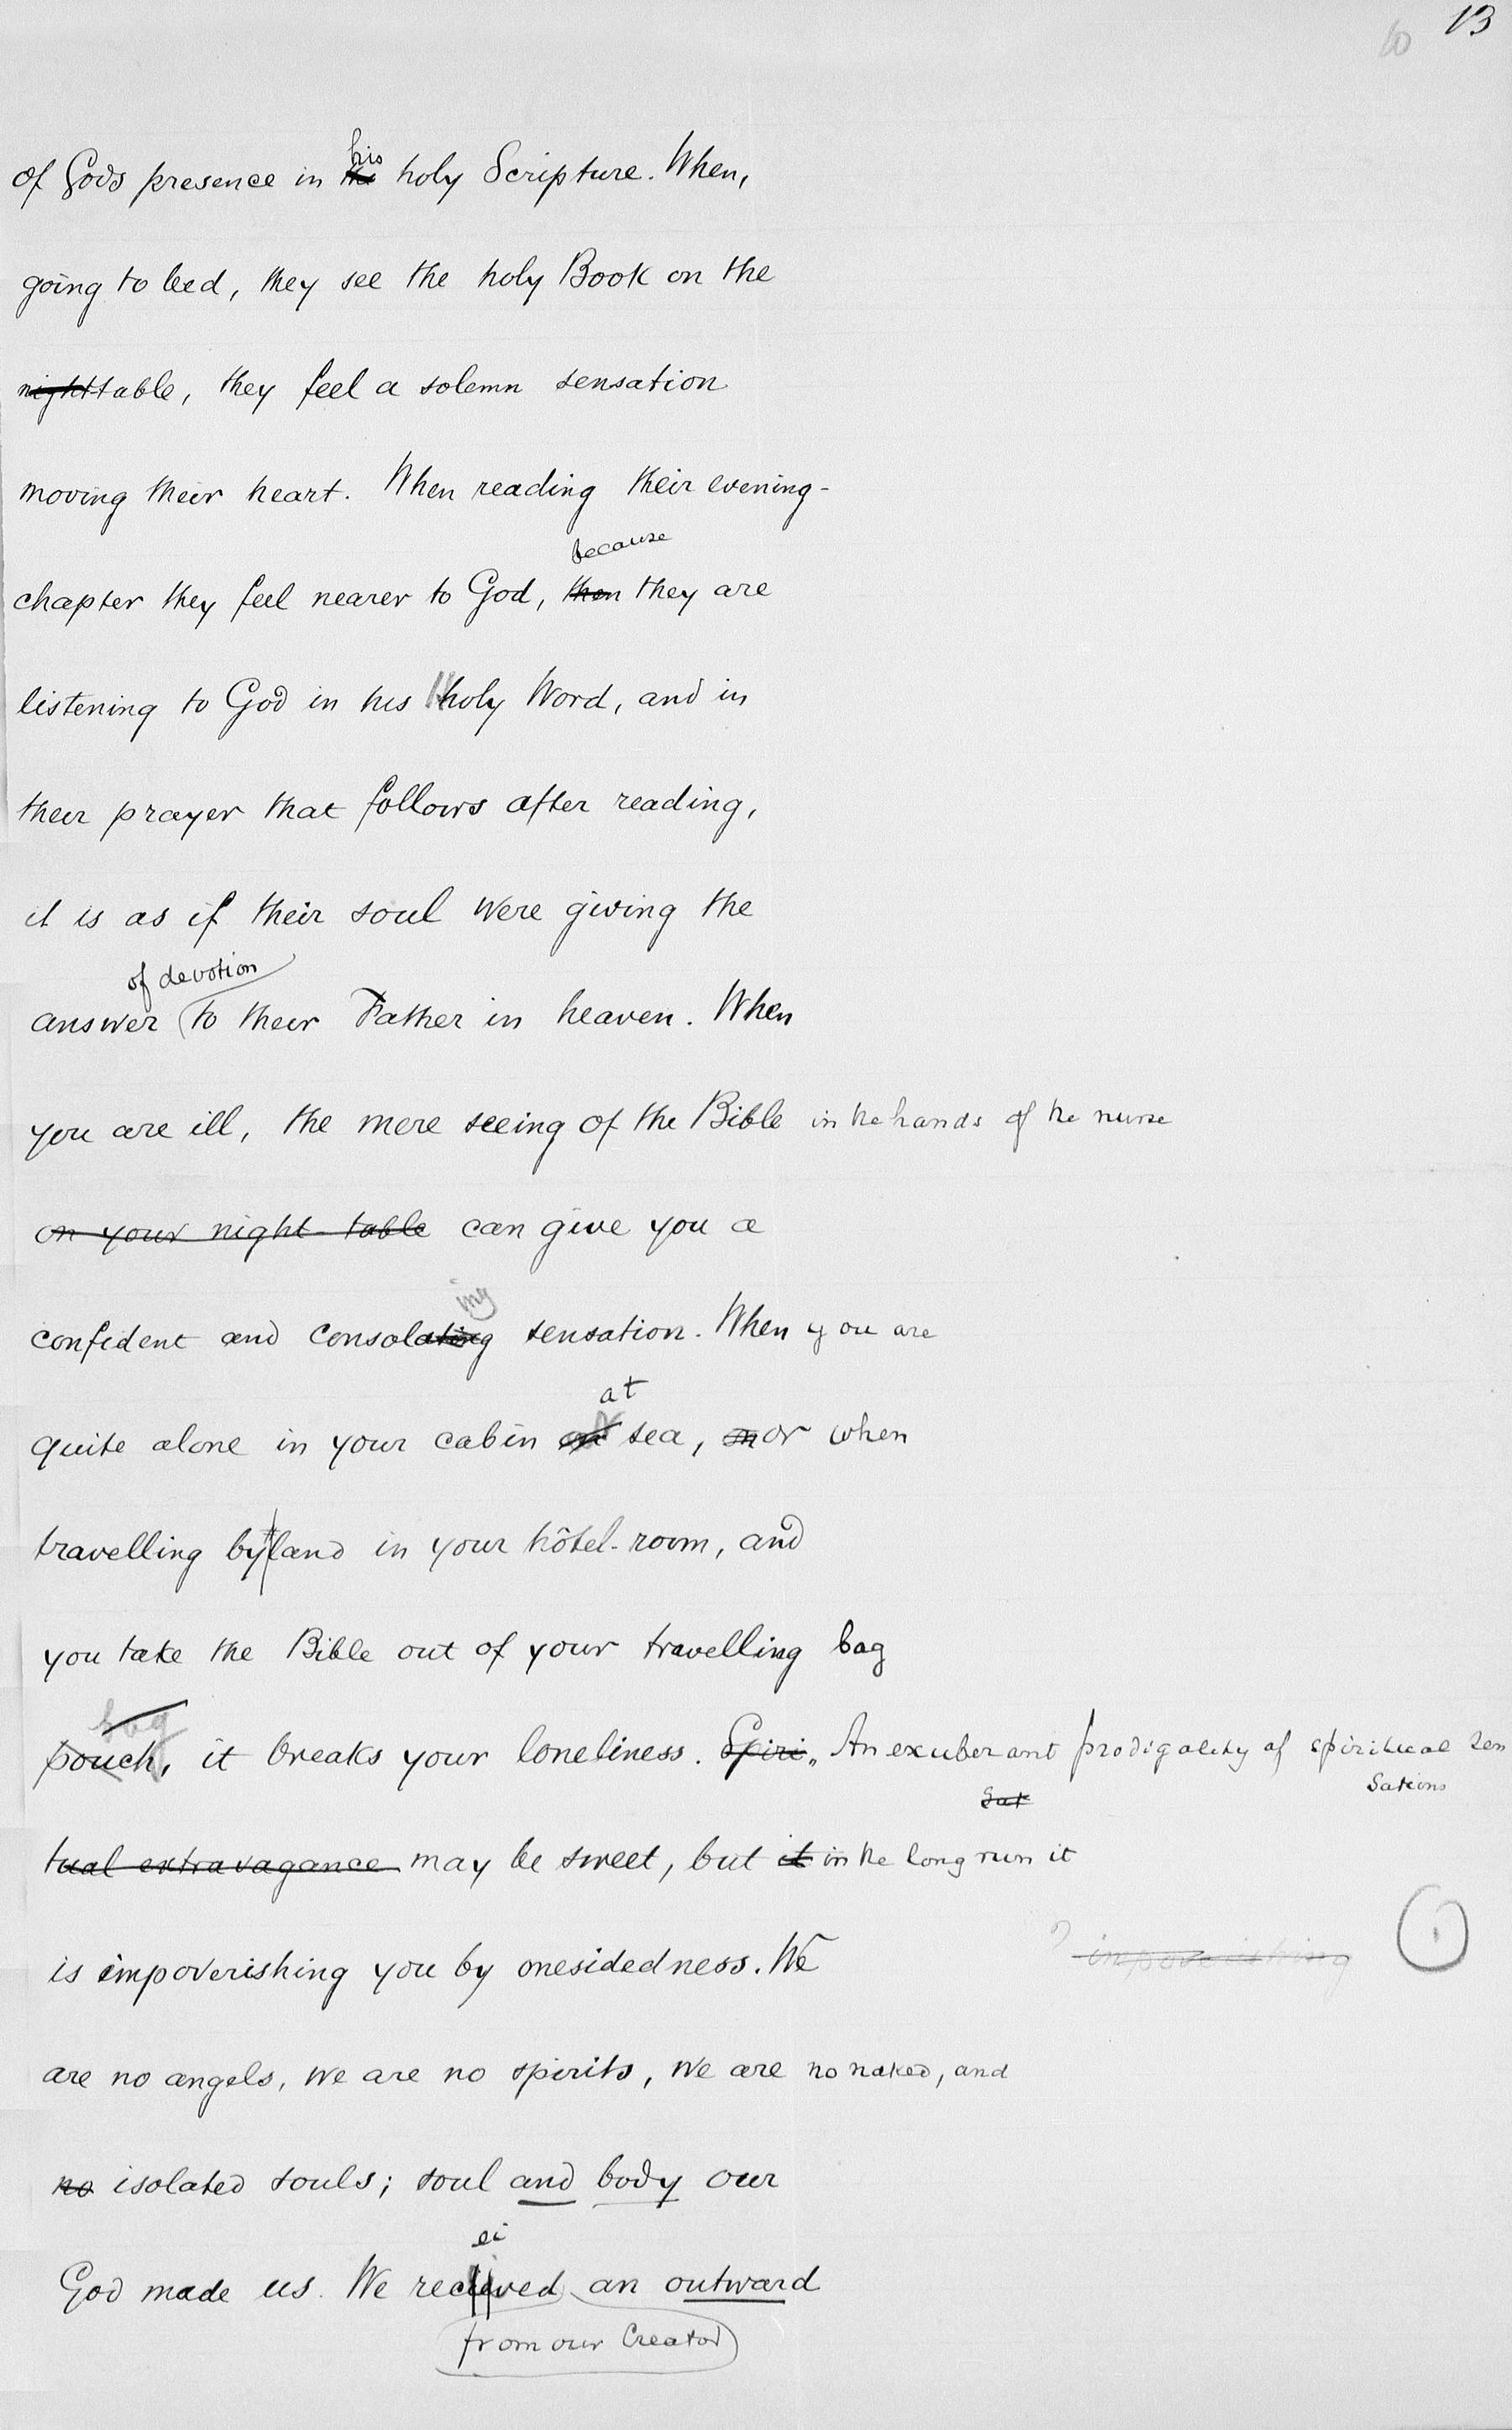 10 13
his
of Gods presence in the holy Scripture. When,
going to bed, they see the holy Book on the
nighttable, they feel a solemn sensation
moving their heart. When reading their evening-
because
chapter they feel nearer to God, then they are
listening to God in his holy Word, and in
their prayer that follows after reading,
it is as if their soul were giving the
of devotion
answer to their Father in heaven. When
you are ill, the mere seeing of the Bible in the hands of the nurse
on your night-table can give you a
ing
confident and consolating sensation. When you are
at
quite alone in your cabin on sea, on or when
travelling by land in your hôtel-room, and
you take the Bible out of your travelling bag
bag
pouch, it breaks your loneliness. Spiri„ An exuberant prodigality of spiritual sen
sat sations
tual extravagance may be sweet, but it in the long run it
is impoverishing you by onesidedness. We ? impoverishing 1
are no angels, we are no spirits, we are no naked, and
no isolated souls; soul and body our
ei
God made us. We recieved an outward
from our Creator